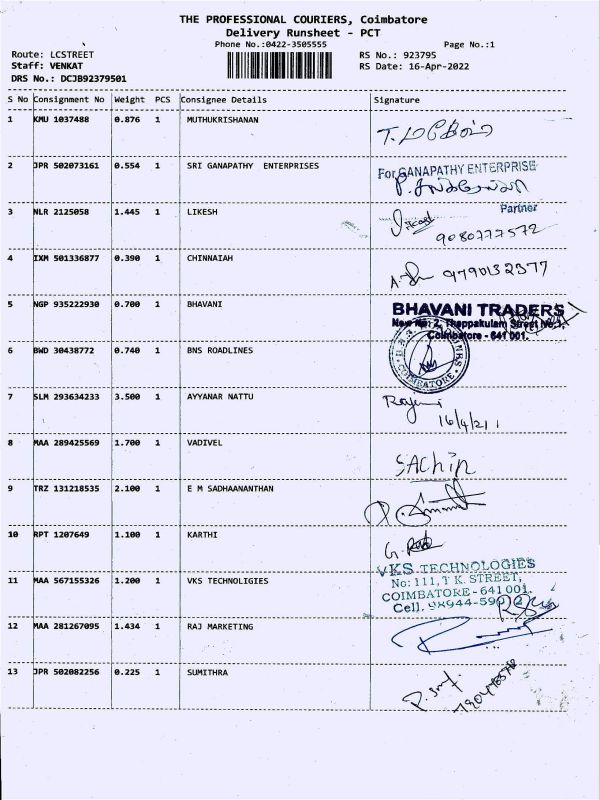 THE PROFESSIONAL COURIERS, Coimbatore
Delivery Runsheet - PCT
Phone No.:0422-3505555
Page No.:1
Route: LCSTREET
RS No.: 923795
Staff: VENKAT
RS Date: 16-Apr-2022
DRS No.: DCJB92379501
S No Consignment No Weight PCS Consignee Details Signature
1 KMU 1037488 0.876 1 MUTHUKRISHANAN
2 JPR 502073161 0.554 1 SRI GANAPATHY ENTERPRISES For GANAPATHY ENTERPRISE
Partner
3 NLR 2125058 1.445 1 LIKESH
9080777572
4 IXM 501336877 0.390 1 CHINNAIAH 9790132377
5 NGP 935222930 0.700 1 BHAVANI BHAVANI TRADERS
New No: 2, Theppakulam Street No.1,
Coimbatore - 641 001.
6 BWD 30438772 0.740 1 BNS ROADLINES
COIMBATORE
7 SLM 293634233 3.500 1 AYYANAR NATTU
16/4/21
8 MAA 289425569 1.700 1 VADIVEL
SAChin
9 TRZ 131218535 2.100 1 E M SADHAANANTHAN
10 RPT 1207649 1.100 1 KARTHI
VKS TECHNOLOGIES
11 MAA 567155326 1.200 1 VKS TECHNOLIGIES No: 111, T K. STREET,
COIMBATORE - 641 001.
Cell. 98944-590
12 MAA 281267095 1.434 1 RAJ MARKETING
13 JPR 502082256 0.225 1 SUMITHRA